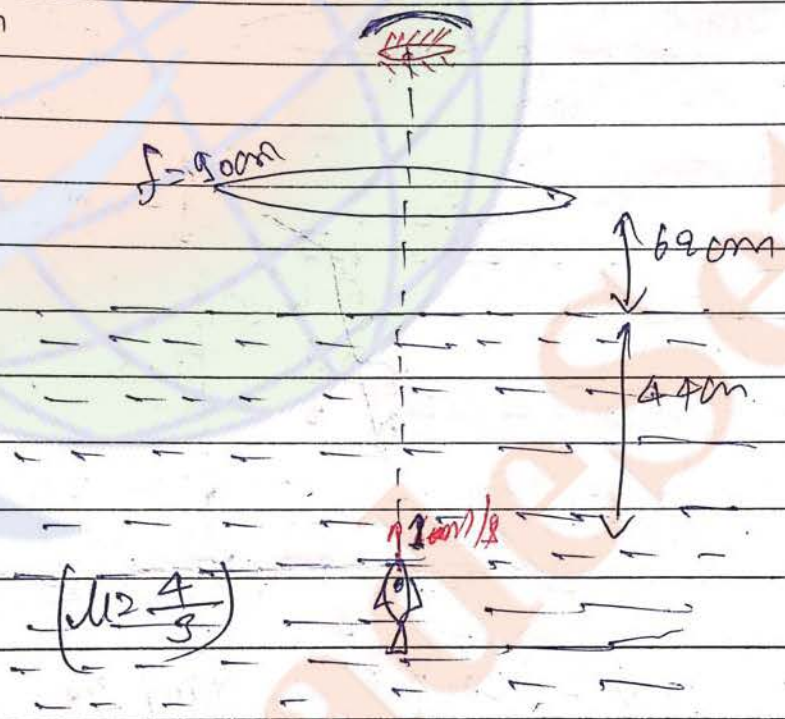 n
f=90cm
62cm
44cm
1cm/s
(μ = 4/3)